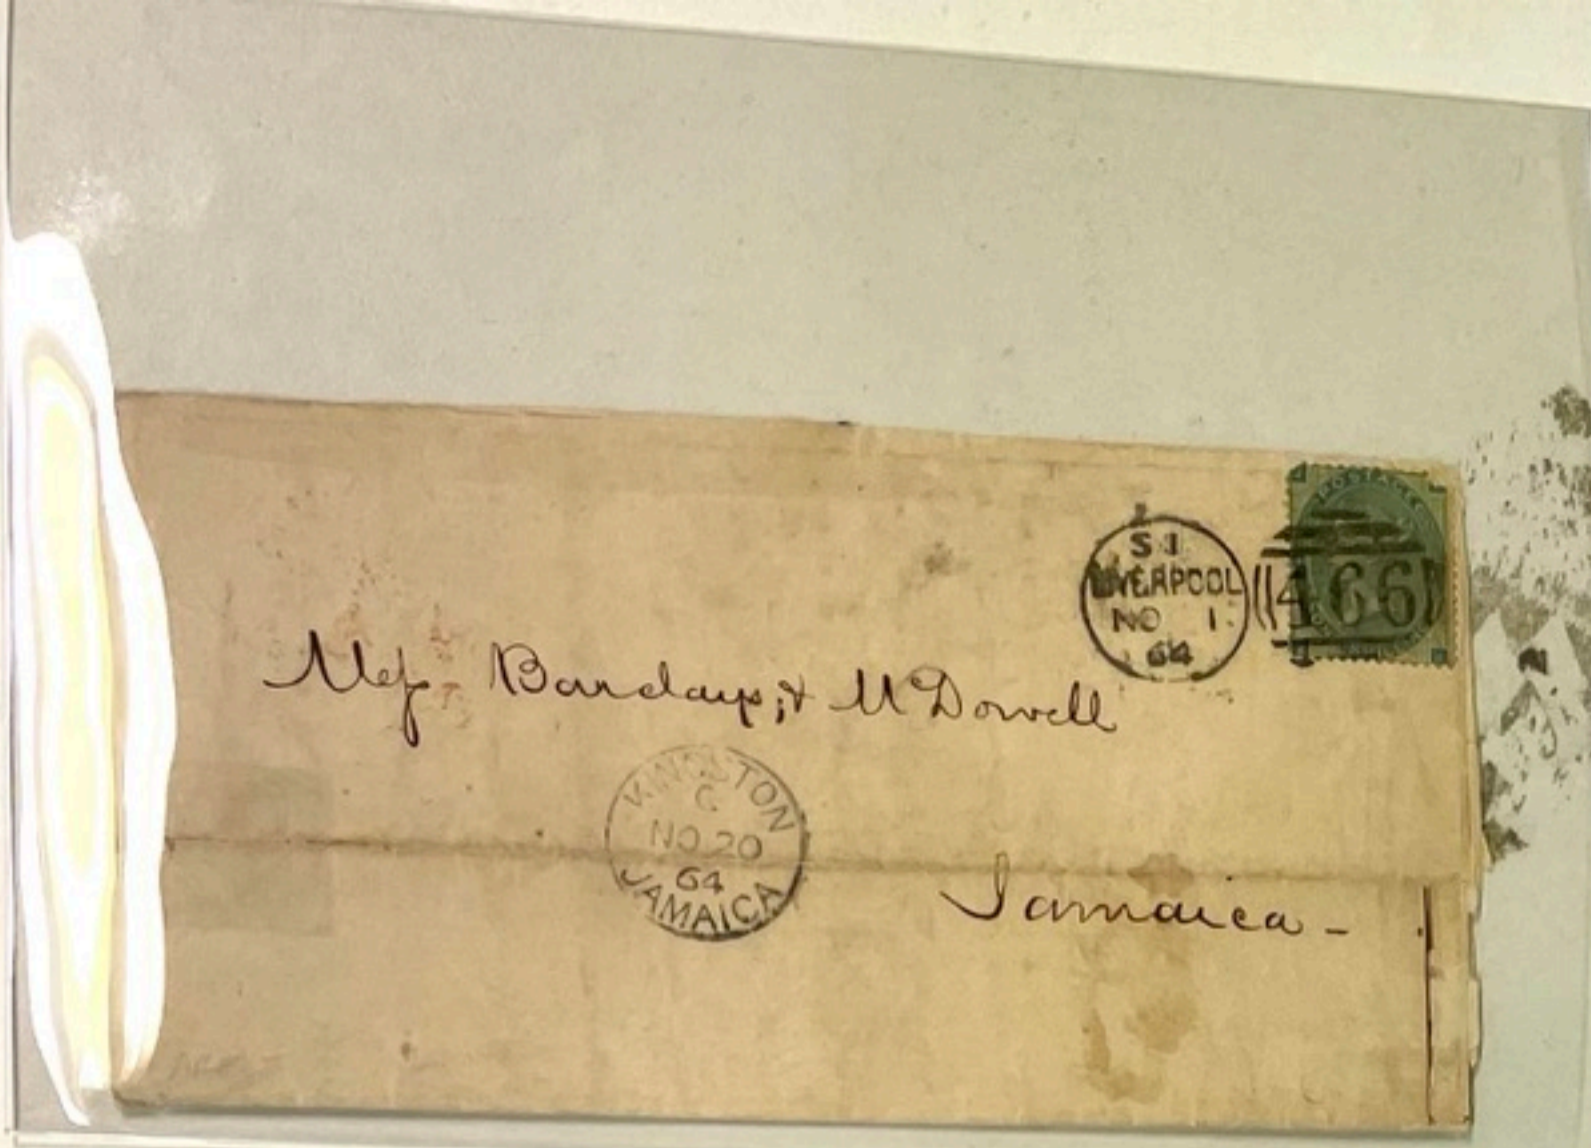 POSTAGE
S1
LIVERPOOL
NO 1
64
466
1
Mess Barclays & McDowell
KINGSTON
C
NO 20
64
JAMAICA
Jamaica -